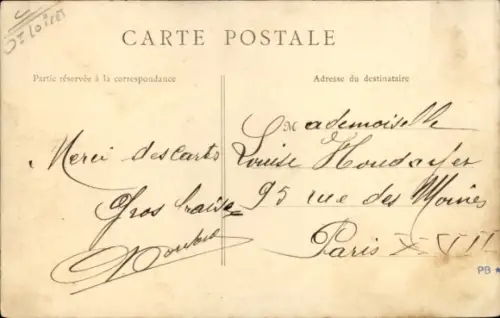 CARTE POSTALE
Partie réservée à la correspondance
Adresse du destinataire
Merci des carts
Gros baise
Mademoiselle
Louise Houdayer
95 rue des Moines
Paris XVII
PB